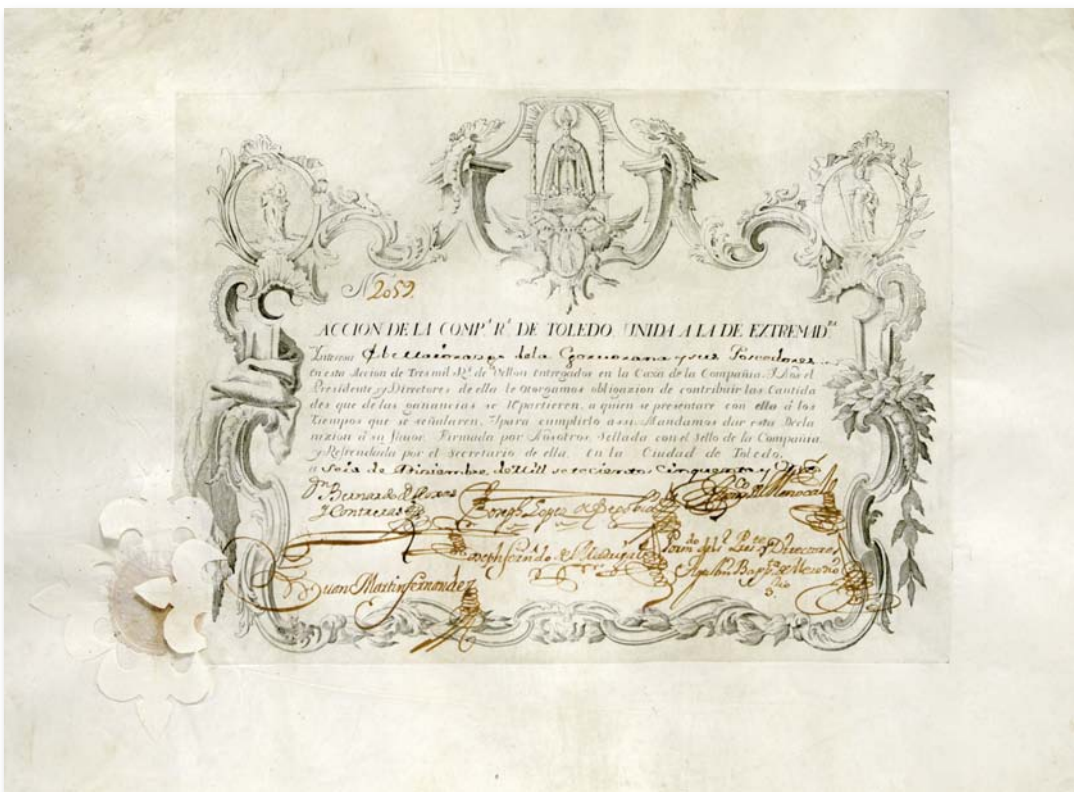 Nº 2059.
ACCION DE LA COMPª. Rª. DE TOLEDO, UNIDA A LA DE EXTREMADRA.
Interesa y sus Poseedores
En esta Accion de Tres mil Rs. de Vellon entregados en la Caxa de la Compañia. Y Nos el
Presidente, y Directores de ella le otorgamos obligazion de contribuir las Cantida
des que de las ganancias se Repartieren, a quien se presentare con ella á los
tiempos que se señalaren. Y para cumplirlo assi, Mandamos dar esta Decla
razion á su favor, Firmada por Nosotros, Sellada con el Sello de la Compañia
y Refrendada por el Secretario de ella. En la Ciudad de Toledo,
a Seis de de Mill setecientos Cinquenta y
Bernardo de Roxas
y Contreras
Joseph Lopez de
Joseph
Por mdo. de los Sres. Preste. y Directores
Juan Martin fernandez
Agustin Bapta. de